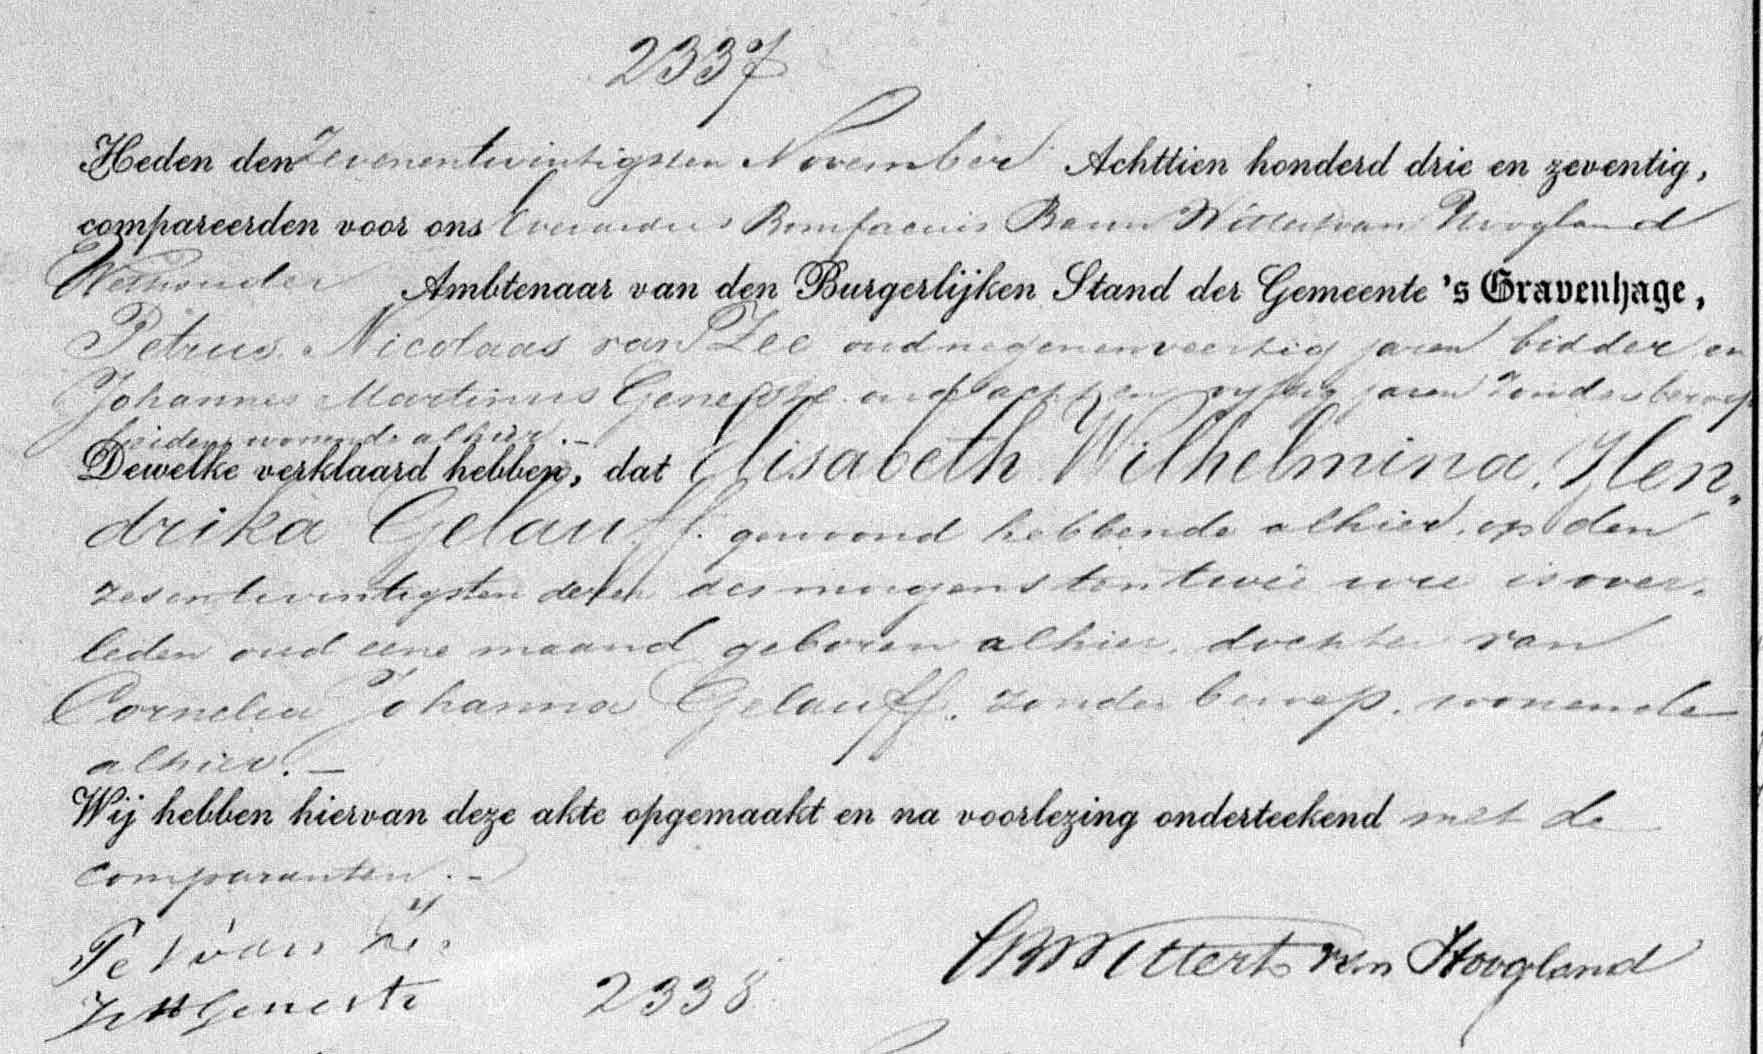 2337
Heden den zevenentwintigsten November Achttien honderd drie en zeventig,
compareerden voor ons Everardus Bonifacius Baron Wittert van Hoogland
Wethouder Ambtenaar van den Burgerlijken Stand der Gemeente 's Gravenhage,
Petrus Nicolaas van Zee oud negenenveertig jaren bidder en
Johannes Martinus Geneste oud achtenvyftig jaren zonder beroep
beiden wonende alhier.-
Dewelke verklaard hebben, dat Elisabeth Wilhelmina Hen-
drika Gelauff. gewoond hebbende alhier, op den
zesentwintigsten dezer des morgens ten twee ure is over-
leden oud eene maand geboren alhier, dochter van
Cornelia Johanna Gelauff. zonder beroep. wonende
alhier.-
Wij hebben hiervan deze akte opgemaakt en na voorlezing onderteekend met de
comparanten.-
P N van Zee
J M Geneste
EBWittert van Hoogland
2338